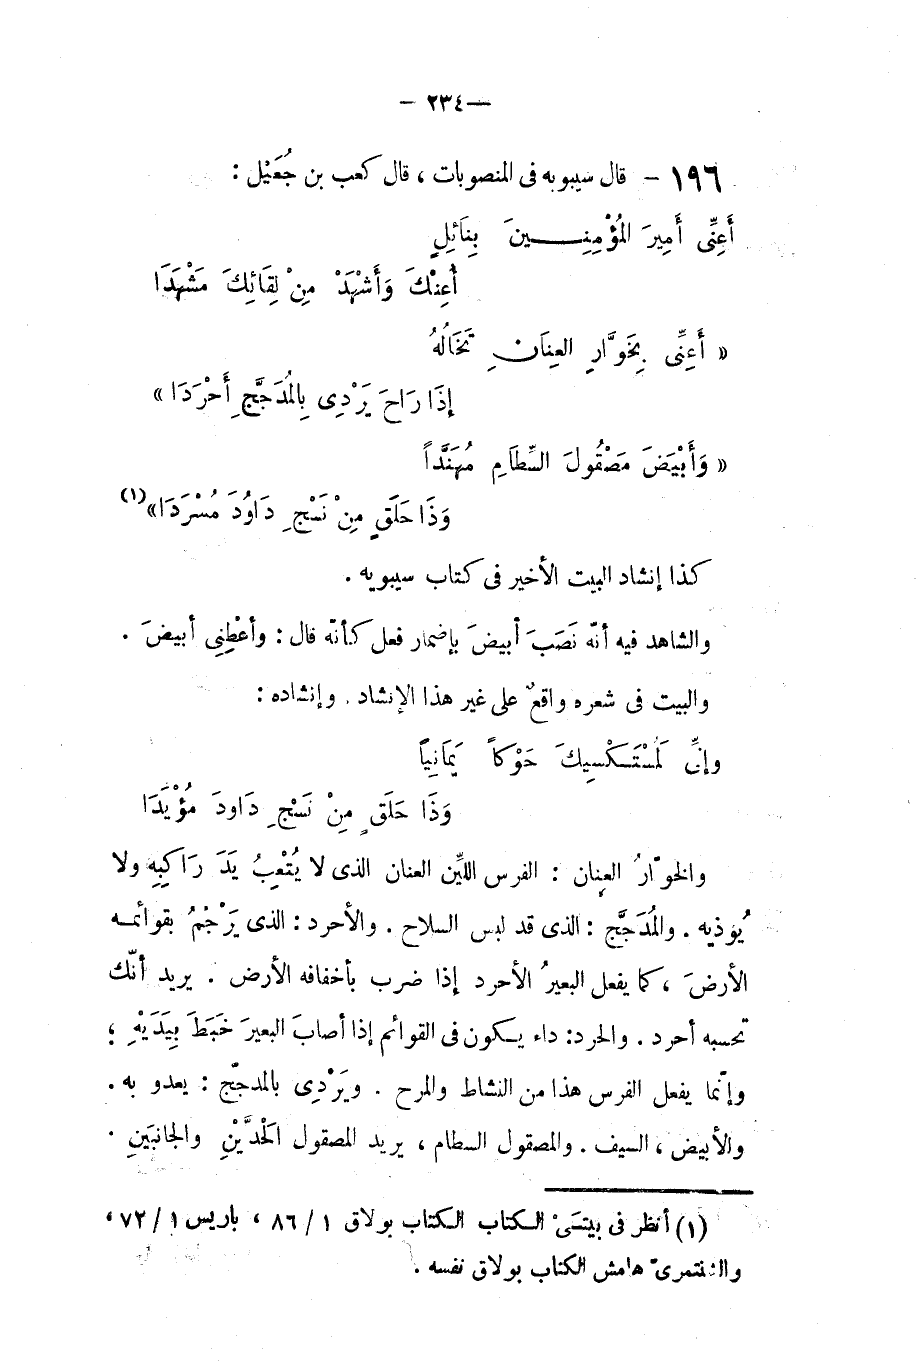 — ٢٣٤ —
١٩٦ — قال سيبويه فى المنصوبات ، قال كعب بن جُعَيْل :
أَعِنِّى أَمِيرَ المُؤْمِنِـــــينَ بِنَائِلٍ
أُعِنْكَ وَأَشْهَدْ مِنْ لِقَائِكَ مَشْهَدَا
« أَعِنِّى بِخَوَّارِ العِنَانِ تَخَالُهُ
إِذَا رَاحَ يَرْدِى بِالمُدَجَّجِ أَحْرَدَا »
« وَأَبْيَضَ مَصْقُولَ السِّطَامِ مُهَنَّداً
وَذَا حَلَقٍ مِنْ نَسْجِ دَاوُدَ مُسْرَدَا» (١)
كذا إنشاد البيت الأخير فى كتاب سيبويه .
والشاهد فيه أنّه نَصَبَ أبيضَ بإضمار فعل كأنّه قال : وأعْطِنِى أبيضَ .
والبيت فى شعره واقعٌ على غير هذا الإنشاد . وإنشاده :
وإنِّى لَمُسْتَكْسِيكَ حَوْكاً يَمَانِيًّا
وَذَا حَلَقٍ مِنْ نَسْجِ دَاودَ مُؤْيَدَا
والخوّارُ العِنان : الفرس الليِّن العنان الذى لا يُتْعِبُ يَدَ رَاكِبِهِ ولا
يُوذيه . والمُدَجَّج : الذى قد لبس السلاح . والأحرد : الذى يَرْجُمُ بقوائمه
الأرضَ ، كما يفعل البعيرُ الأحرد إذا ضرب بأخفافه الأرض . يريد أنّك
تحسبه أحرد . والحرد: داء يكون فى القوائم إذا أصابَ البعيرَ خَبَطَ بِيَدَيْهِ ؛
وإنّما يفعل الفرس هذا من النشاط والمرح . ويَرْدِى بالمدجّج : يعدو به .
والأبيض ، السيف . والمصقول السطام ، يريد المصقول الحَدَّيْنِ والجانبَينِ .
(١) أنظر فى بيتَىْ الكتاب الكتاب بولاق ١ / ٨٦ ، باريس ١ / ٧٢ ،
والشنتمرىّ هامش الكتاب بولاق نفسه .